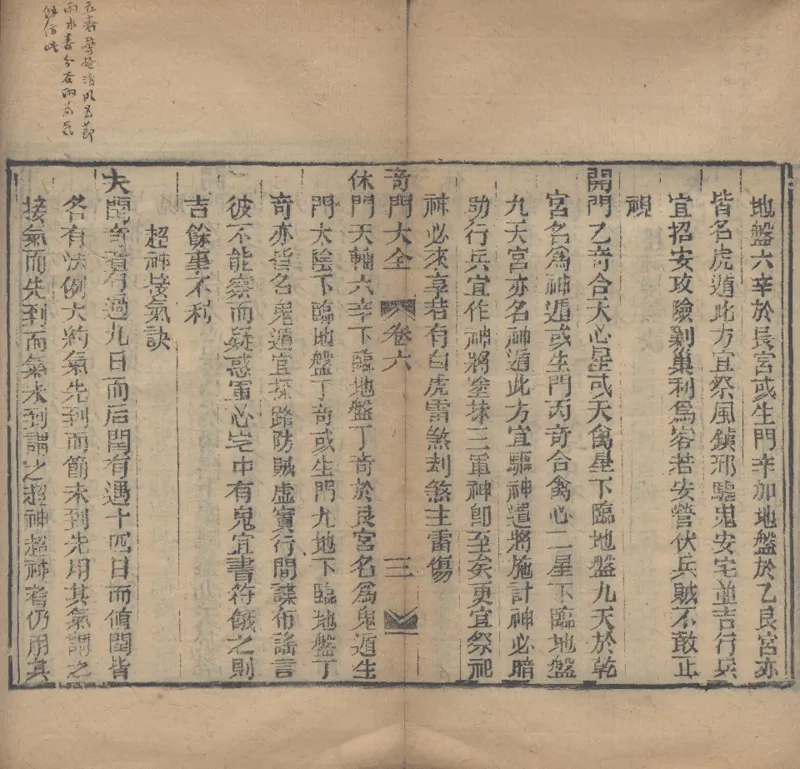 地盤六辛於艮宮或生門辛加地盤於乙艮宮亦
皆名虎遁此方宜祭風鎮邪驅鬼安宅並吉行兵
宜招安攻險剿巢利為客若安營伏兵賊不敢正
視
開門乙竒合天心星或天禽星下臨地盤九天於乾
宮名為神遁或生門丙竒合禽心二星下臨地盤
九天宮亦名神遁此方宜驅神遣將施計神必暗
助行兵宜作神將塗抹三軍神卽至矣更宜祭祀
神必來享若有白虎雷煞刦煞主雷傷
竒門大全 卷六 三
休門天輔六辛下臨地盤丁竒於艮宮名為鬼遁生
門太陰下臨地盤丁竒或生門九地下臨地盤丁
竒亦皆名鬼遁宜探路防賊虛實行間諜布謠言
彼不能察而疑惑軍心宅中有鬼宜書符餓之則
吉餘事不利
超神接氣訣
夫閏竒有過九日而后閏有遇十四日而値閏皆
各有法例大約氣先到而節未到先用其氣謂之
接氣而先到而氣未到謂之超神超神者仍用其